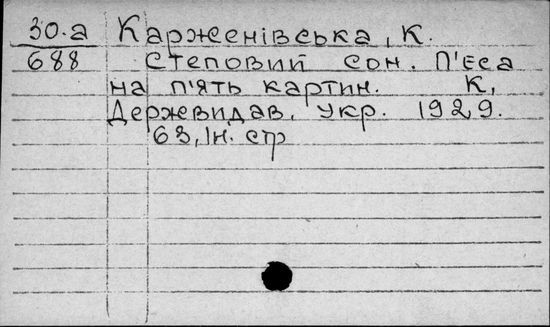 30.а Карженівська, К.
688 Степовий сон. П'єса
на п'ять картин. К,
Держвидав, Укр. 1929.
63, Ін. стр